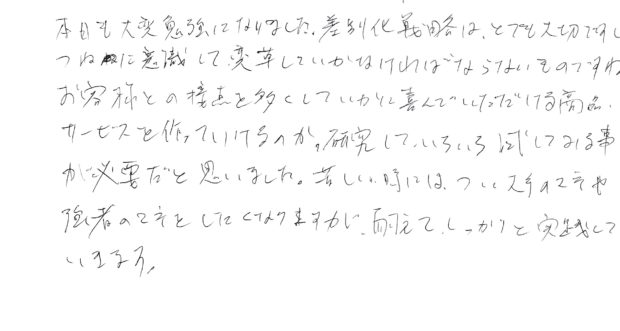 本日も大変勉強になりました。差別化戦略は、とても大切ですし
つねに意識して、変革していかなければならないものですね
お客様との接点を多くしていかに喜んでいただける商品、
サービスを作っていけるのか。研究して、いろいろ試してみる事
が必要だと思いました。苦しい時には、つい大手のマネや
強者のマネをしたくなりますが、耐えて、しっかりと実践して
いきます。